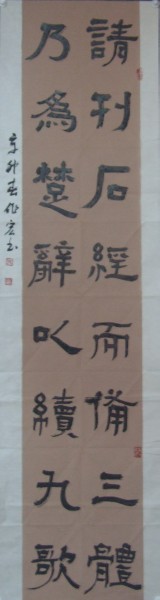 請刊石經而備三體
乃為楚辭以續九歌